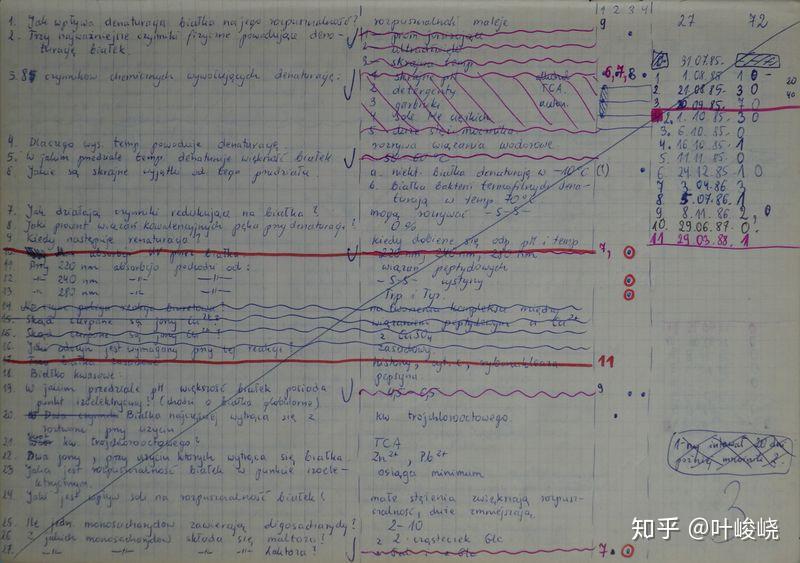 1. Jak wpływa denaturacja białka na jego rozpuszczalność? rozpuszczalność maleje 9
2. Trzy najważniejsze czynniki fizyczne powodujące dena-
turację białek.
3 skrajne temp
3. 8 czynników chemicznych wywołujących denaturację: 1 skrajne pH 6,7,8
2 detergenty TCA
3 garbniki
4 sole
5 duże
4. Dlaczego wys. temp powoduje denaturację rozrywa wiązania wodorowe
5. W jakim przedziale temp. denaturuje większość białek 50-60°C
6 Jakie są skrajne wyjątki od tego przedziału a. niekt. białka denaturują w -10°C (1)
b. białka bakterii termofilnych dena-
turują w temp 70°C
7. Jak działają czynniki redukujące na białka? mogą rozrywać -S-S-
8. Jaki procent wiązań kowalencyjnych pęka przy denaturacji? 0%
9 Kiedy następuje renaturacja? kiedy dobierze się odp. pH i temp
7,
11 Przy 220 nm absorbują pochodzi od: wiązań peptydowych
12 -"- 240 nm -"- -S-S- cystyny
13 -"- 280 nm -"- Trp i Tyr.
15. Skąd czerpane są jony Cu2+? wiązaniem peptydowym a Cu2+
z CuSO4
16. Jaki odczyn jest wymagany przy tej reakcji? zasadowy
17. Trzy białka zasadowe histony, cyt. c, rybonukleaza 11
18. Białko kwaśne: pepsyna
19. W jakim przedziale pH większość białek posiada 4,5-6,5 9
punkt izoelektryczny? (chodzi o białka globularne)
20. Białka najczęściej wytrąca się z kw trójchlorooctowego.
roztworu przy użyciu
21. kw. trójchlorooctowego? TCA
22. Dwa jony, przy użyciu których wytrąca się białka. Zn2+, Pb2+
23 Jaka jest rozpuszczalność białek w punkcie izoele- osiąga minimum
ktrycznym.
24. Jaki jest wpływ soli na rozpuszczalność białek? małe stężenia zwiększają rozpusz-
czalność, duże zmniejszają
25. Ile jedn. monosacharydów zawierają oligosacharydy? 2-10
26 Z jakich monosacharydów składa się maltoza? z 2 cząsteczek Glc
27. -"- -"- -"- laktoza? 7
1 2 3 4
27 72
31.07.85
1 1.08.85 1 0
2 21.08.85 3 0 20
3 10.09.85 7 0 40
2. 1.10.85 3 0
3. 6.10.85 0
4. 16.10.85 1
5. 11.11.85 0
6 24.12.85 1 0
7 3.04.86 3
8 5.07.86 1
9 8.11.86 2, 0
10. 29.06.87 0
11 29.03.88. 1
1-ny interwał 20 dni
później mnożnik 2
3
知乎 @叶峻峣